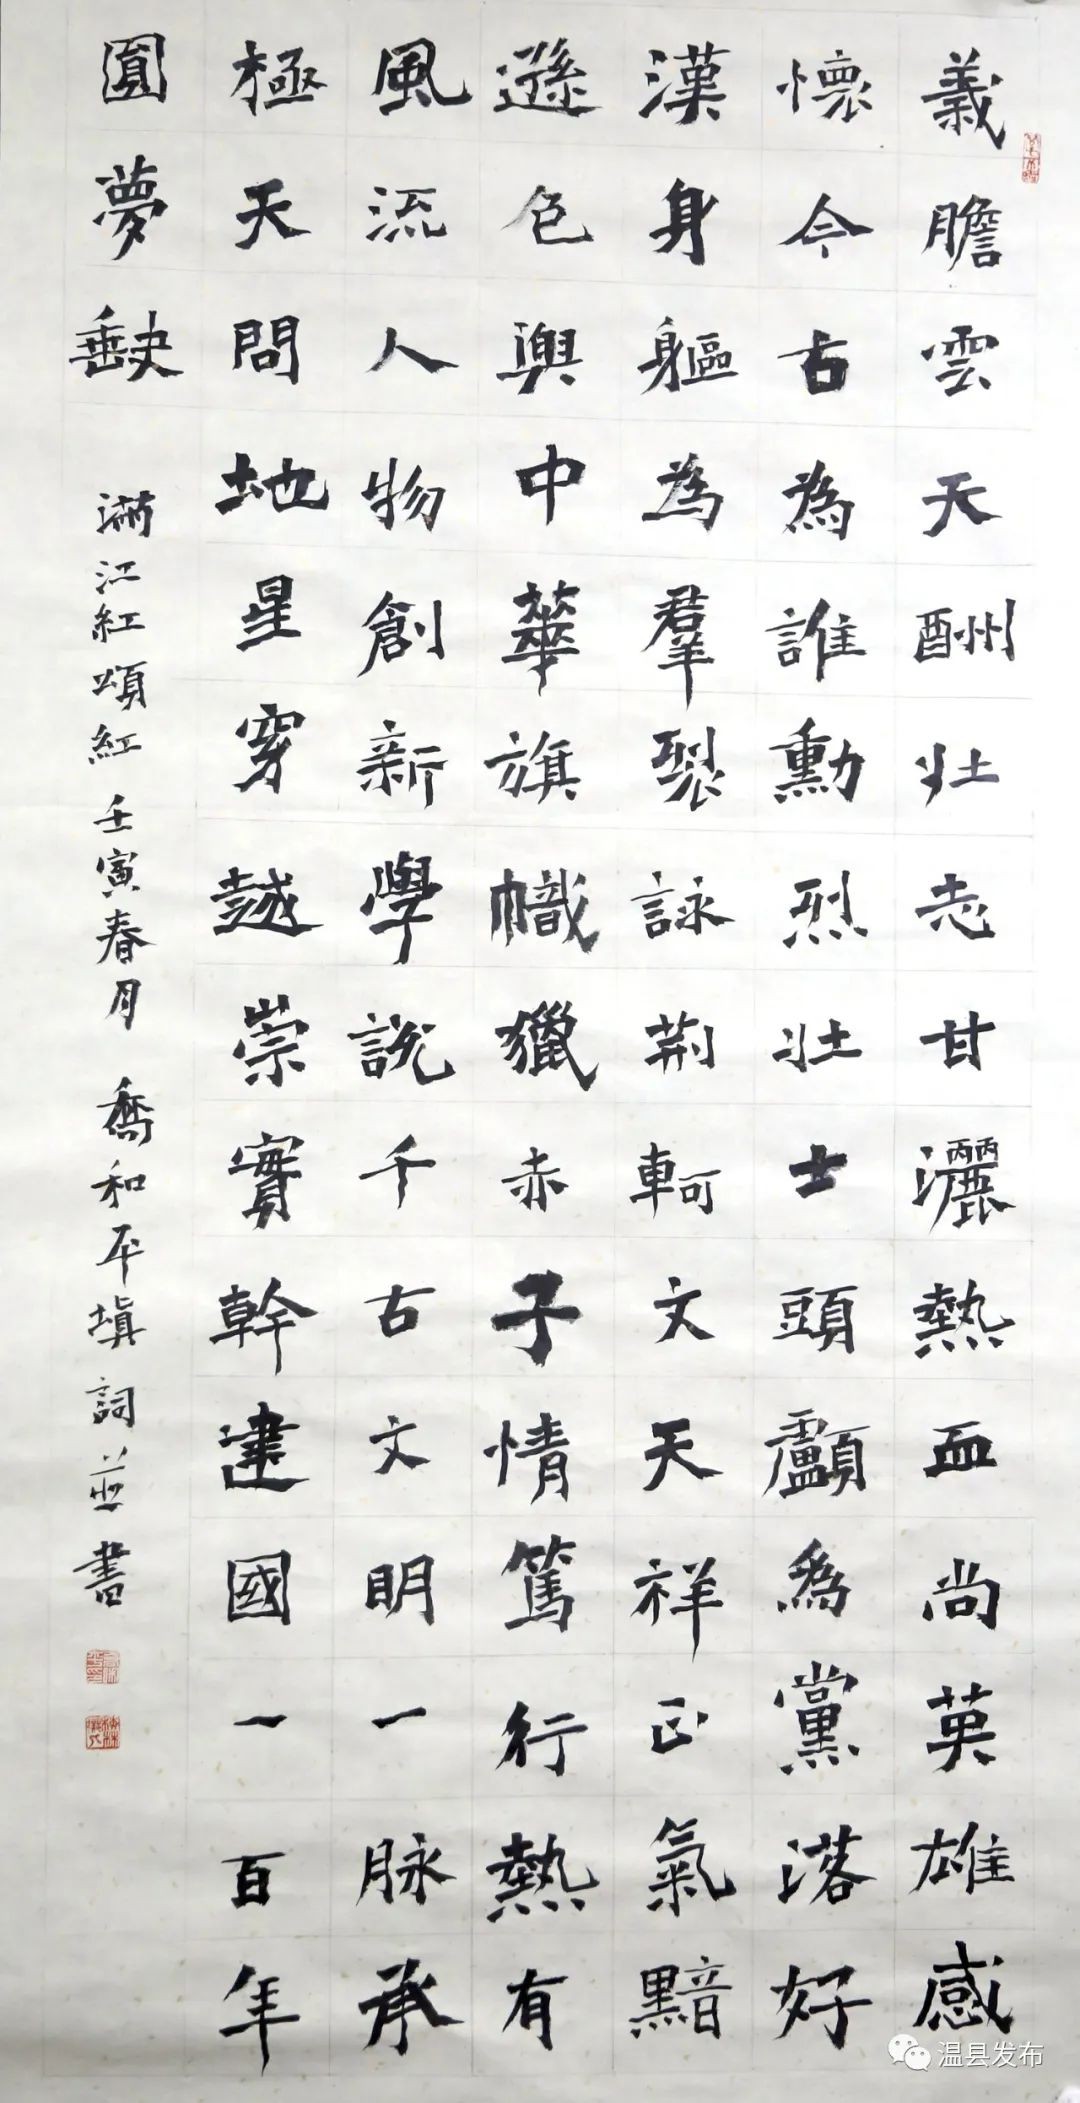 義膽雲天酬壯志甘灑熱血尚英雄感
懷今古為誰勳烈壯士頭顱為黨落好
漢身軀為羣裂詠荆軻文天祥正氣黯
遜色輿中華旗幟獵赤子情篤行熱有
風流人物創新學說千古文明一脉承
極天問地星穿越崇實幹建國一百年
圓夢缺
滿江紅頌紅 壬寅春月 喬和平填詞並書
温县发布